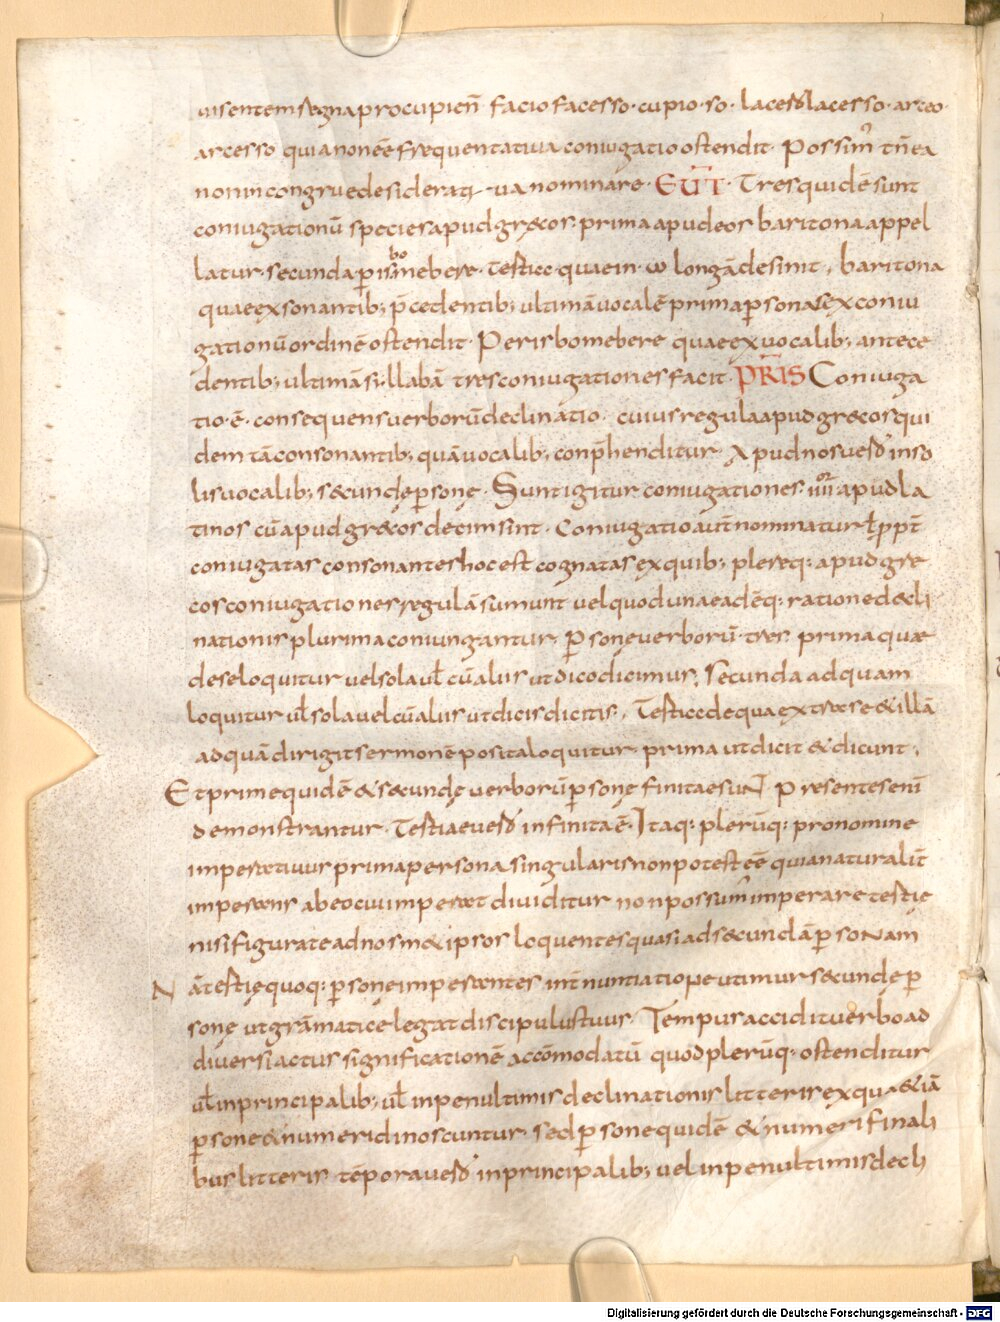 uisentem segna pro cupien̄ facio facesso · cupio · so · lacesd lacesso · arceo ·
arcesso quia non eē frequentatiua coniugatio ostendit · Possim̄ tn̄ ea
non incongrue desideratiua nominare · EUT̄ · Tres quidē sunt
coniugationū species apud grecos · prima apud eos baritona appel
latur · secunda perisbomebere · testicc · quae in · ω longā desinit , baritona
quae ex sonantib; p̄cedentib; ultimā uocalē prima psona sex coniu
gationū ordinē ostendit · Perisbomebere quae ex uocalib; antece
dentib; ultimā sillabā tres coniugationes facit · PRĪS Coniuga
tio · ē · consequens uerborū declinatio · cuius regula apud grecos qui
dem tā consonantib; quā uocalib; conp̄henditur · Apud nos uesd in so
lis uocalib; secundę psonę · Sunt igitur coniugationes · iiii or · apud la
tinos cū apud grecos decim sint · Coniugatio aut̄ nominatur ł ppt̄
coniugatas consonantes hoc est cognatas ex quib; plereq: apud gre
cos coniugationes regulā sumunt uel quod una eadēq: ratione decli
nationis plurima coniungantur · psonę uerborū · tres · prima quae
de se loquitur uel sola uł cū aliis ut dico dicimus , Secunda ad quam
loquitur uł sola uel cū aliis ut dicis dicitis , Testicc de qua extra se & illā
ad quā dirigit sermonē posita loquitur prima ut dicit & dicunt ,
Et prime quidē & secundę uerborū psonę finitae sunt Presentes enī
demonstrantur · Testia euesd infinita ē · Itaq: plerūq: pronomine
imperatiuus prima persona singularis non potest eē quia naturalit̄
imperans ab eo cui imperat diuiditur non possum̄ imperare testie
nisi figurate ad nosm& ipsos loquentes quasi ad secundā psonam
Nā testię quoq: psonę imperantes int̄ nuntiatione utimur secundę p
sonę ut grāmatice legat discipulus tuus · Tempus accidit uerbo ad
diuersi actus significationē accōmodatū quod plerūq: ostenditur
uł in principalib; uł in penultimis declinationis litteris ex qua & iā
psone & numeri dinoscuntur · sed psone quidē & numeri finali
bus litteris tēpora uesd in principalib; uel in penultimis decli
Digitalisierung gefördert durch die Deutsche Forschungsgemeinschaft - DFG